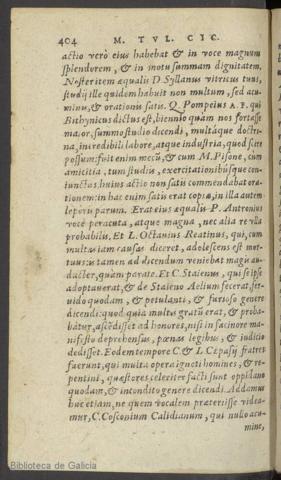 404 M. TVL. CIC.
actio verò eius habebat & in voce magnum
splendorem, & in motu summam dignitatem.
Noster item æqualis D. Syllanus vitricus tuus,
studij ille quidem habuit non multum, sed acu-
minus, & orationis satis. Q. Pompeius A. F. qui
Bithynicus dictus est, biennio quàm nos fortasse
maior, summo studio dicendi, multáque doctri-
na, incredibili labore, atque industria, quod scire
possum: fuit enim mecū, & cum M. Pisone, cum
amicitia, tum studiis, exercitationibúsque con-
iunctus. huius actio non satis commendabat ora-
tionem: in hac enim satis erat copiæ, in illa autem
leporis parum. Erat eius æqualis P. Antronius
voce peracuta, atque magna, nec alia re vlla
probabilis. Et L. Octauius Reatinus, qui, cum
multas iam causas diceret, adolescens est mor-
tuus: is tamen ad dicendum veniebat magis au-
dacter, quàm paratè. Et C. Staienus, qui se ipse
adoptauerat, & de Staieno Aelium fecerat, fer-
uido quodam, & petulanti, & furioso genere
dicendi: quod quia multis gratū erat, & proba-
bātur, ascēdisset ad honores, nisi in facinore ma-
nifesto deprehensus, pœnas legibus, & iudicio
dedisset. Eodem tempore C. & L. Cepasij fratres
fuerunt, qui multa opera ignoti homines, & re-
pentini, quæstores celeriter facti sunt oppidano
quodam, & incondito genere dicendi. Addamus
huc etiam, ne quem vocalem præteriisse videa-
mur, C. Cosconium Calidianum, qui nullo acu-
mine,
Biblioteca de Galicia